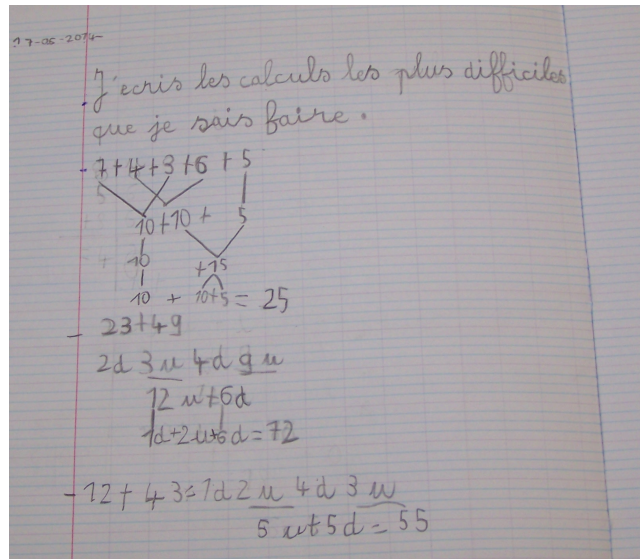 17-05-2024
J'ecris les calculs les plus difficiles
que je sais faire.
- 7+4+3+6+5
10+10+ 5
10 +15
10 + 10+5 = 25
- 23+49
2d 3u 4d 9u
12 u+6d
1d+2u+6d=72
- 12+43=1d 2u 4d 3u
5 u+5d=55